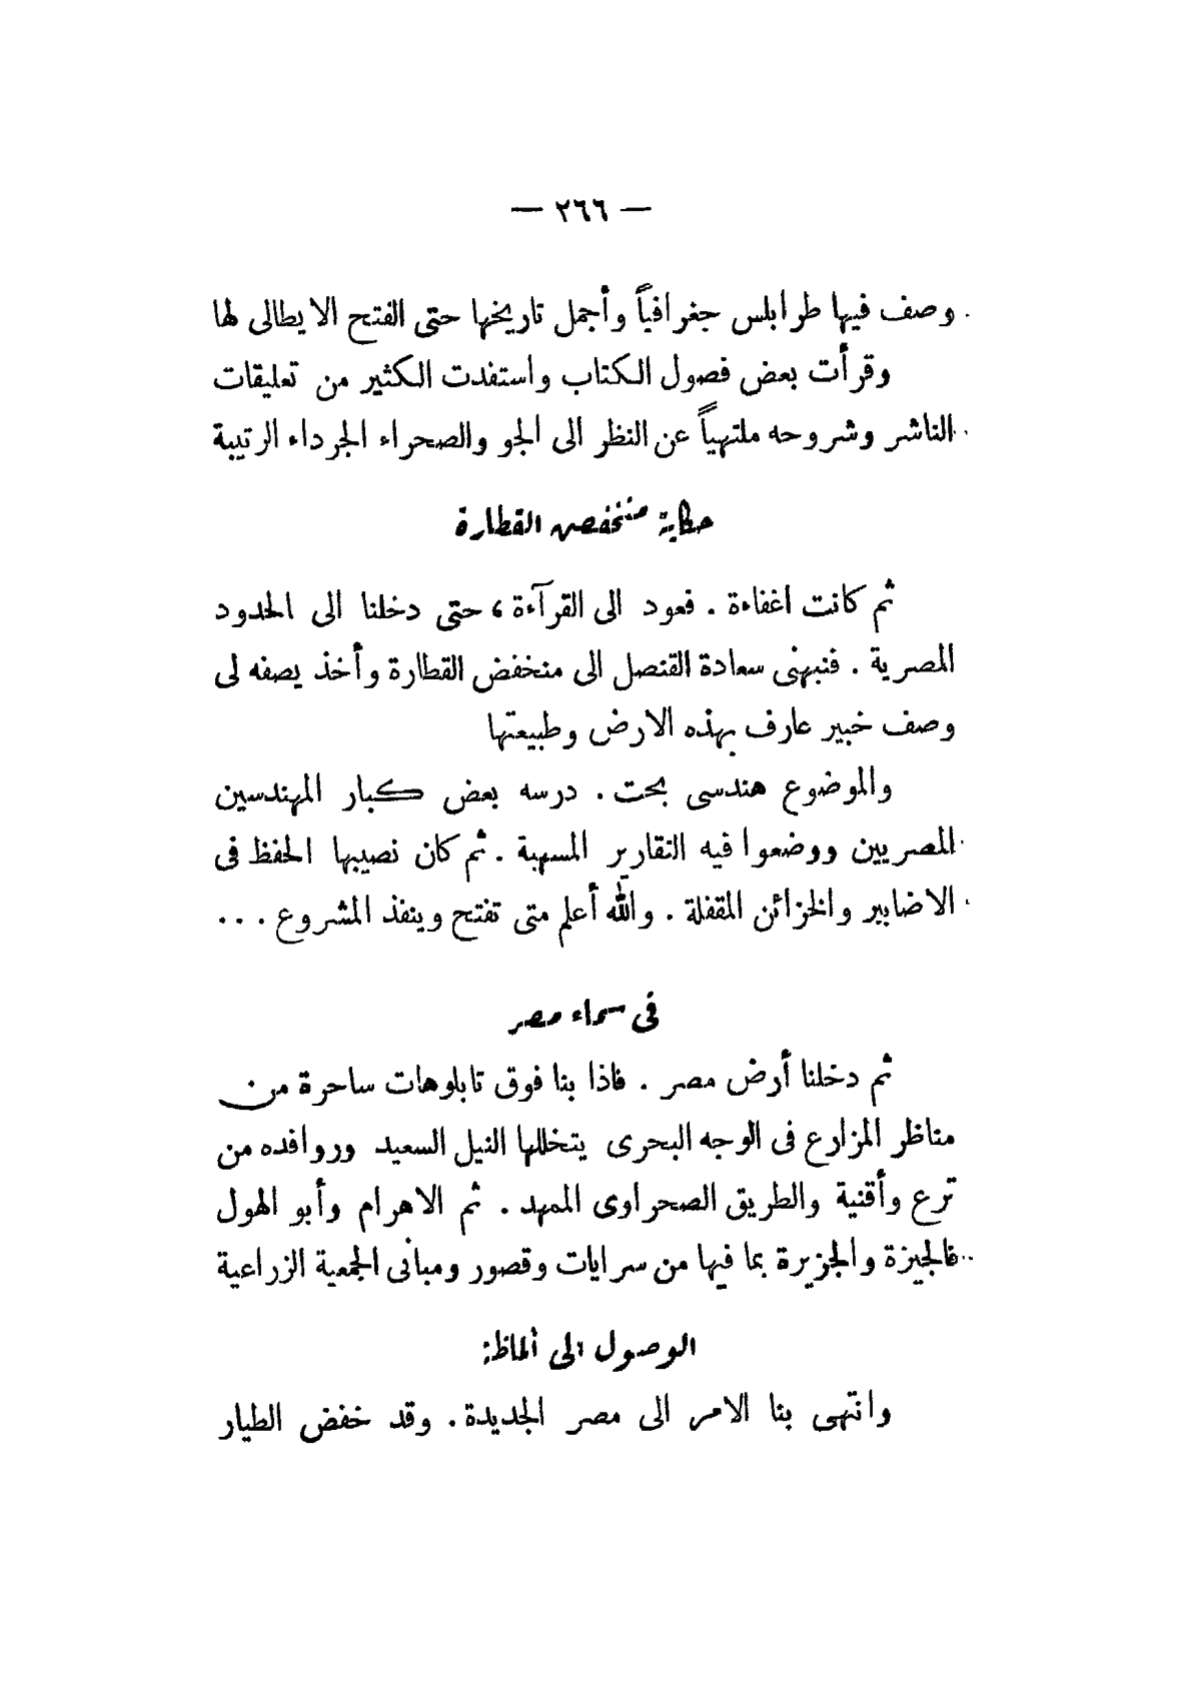 — ٢٦٦ —
وصف فيها طرابلس جغرافياً وأجمل تاريخها حتى الفتح الايطالى لها
وقرأت بعض فصول الكتاب واستفدت الكثير من تعليقات
الناشر وشروحه ملتهياً عن النظر الى الجو والصحراء الجرداء الرتيبة
حكاية منخفض القطارة
ثم كانت اغفاءة . فعود الى القرآءة ، حتى دخلنا الى الحدود
المصرية . فنبهنى سعادة القنصل الى منخفض القطارة وأخذ يصفه لى
وصف خبير عارف بهذه الارض وطبيعتها
والموضوع هندسى بحت . درسه بعض كبار المهندسين
المصريين ووضعوا فيه التقارير المسهبة . ثم كان نصيبها الحفظ فى
الاضابير والخزائن المقفلة . والله أعلم متى تفتح وينفذ المشروع ...
فى سماء مصر
ثم دخلنا أرض مصر . فاذا بنا فوق تابلوهات ساحرة من
مناظر المزارع فى الوجه البحرى يتخللها النيل السعيد وروافده من
ترع وأقنية والطريق الصحراوى الممهد . ثم الاهرام وأبو الهول
فالجيزة والجزيرة بما فيها من سرايات وقصور ومبانى الجمعية الزراعية
الوصول الى ألماظة
وانتهى بنا الامر الى مصر الجديدة . وقد خفض الطيار